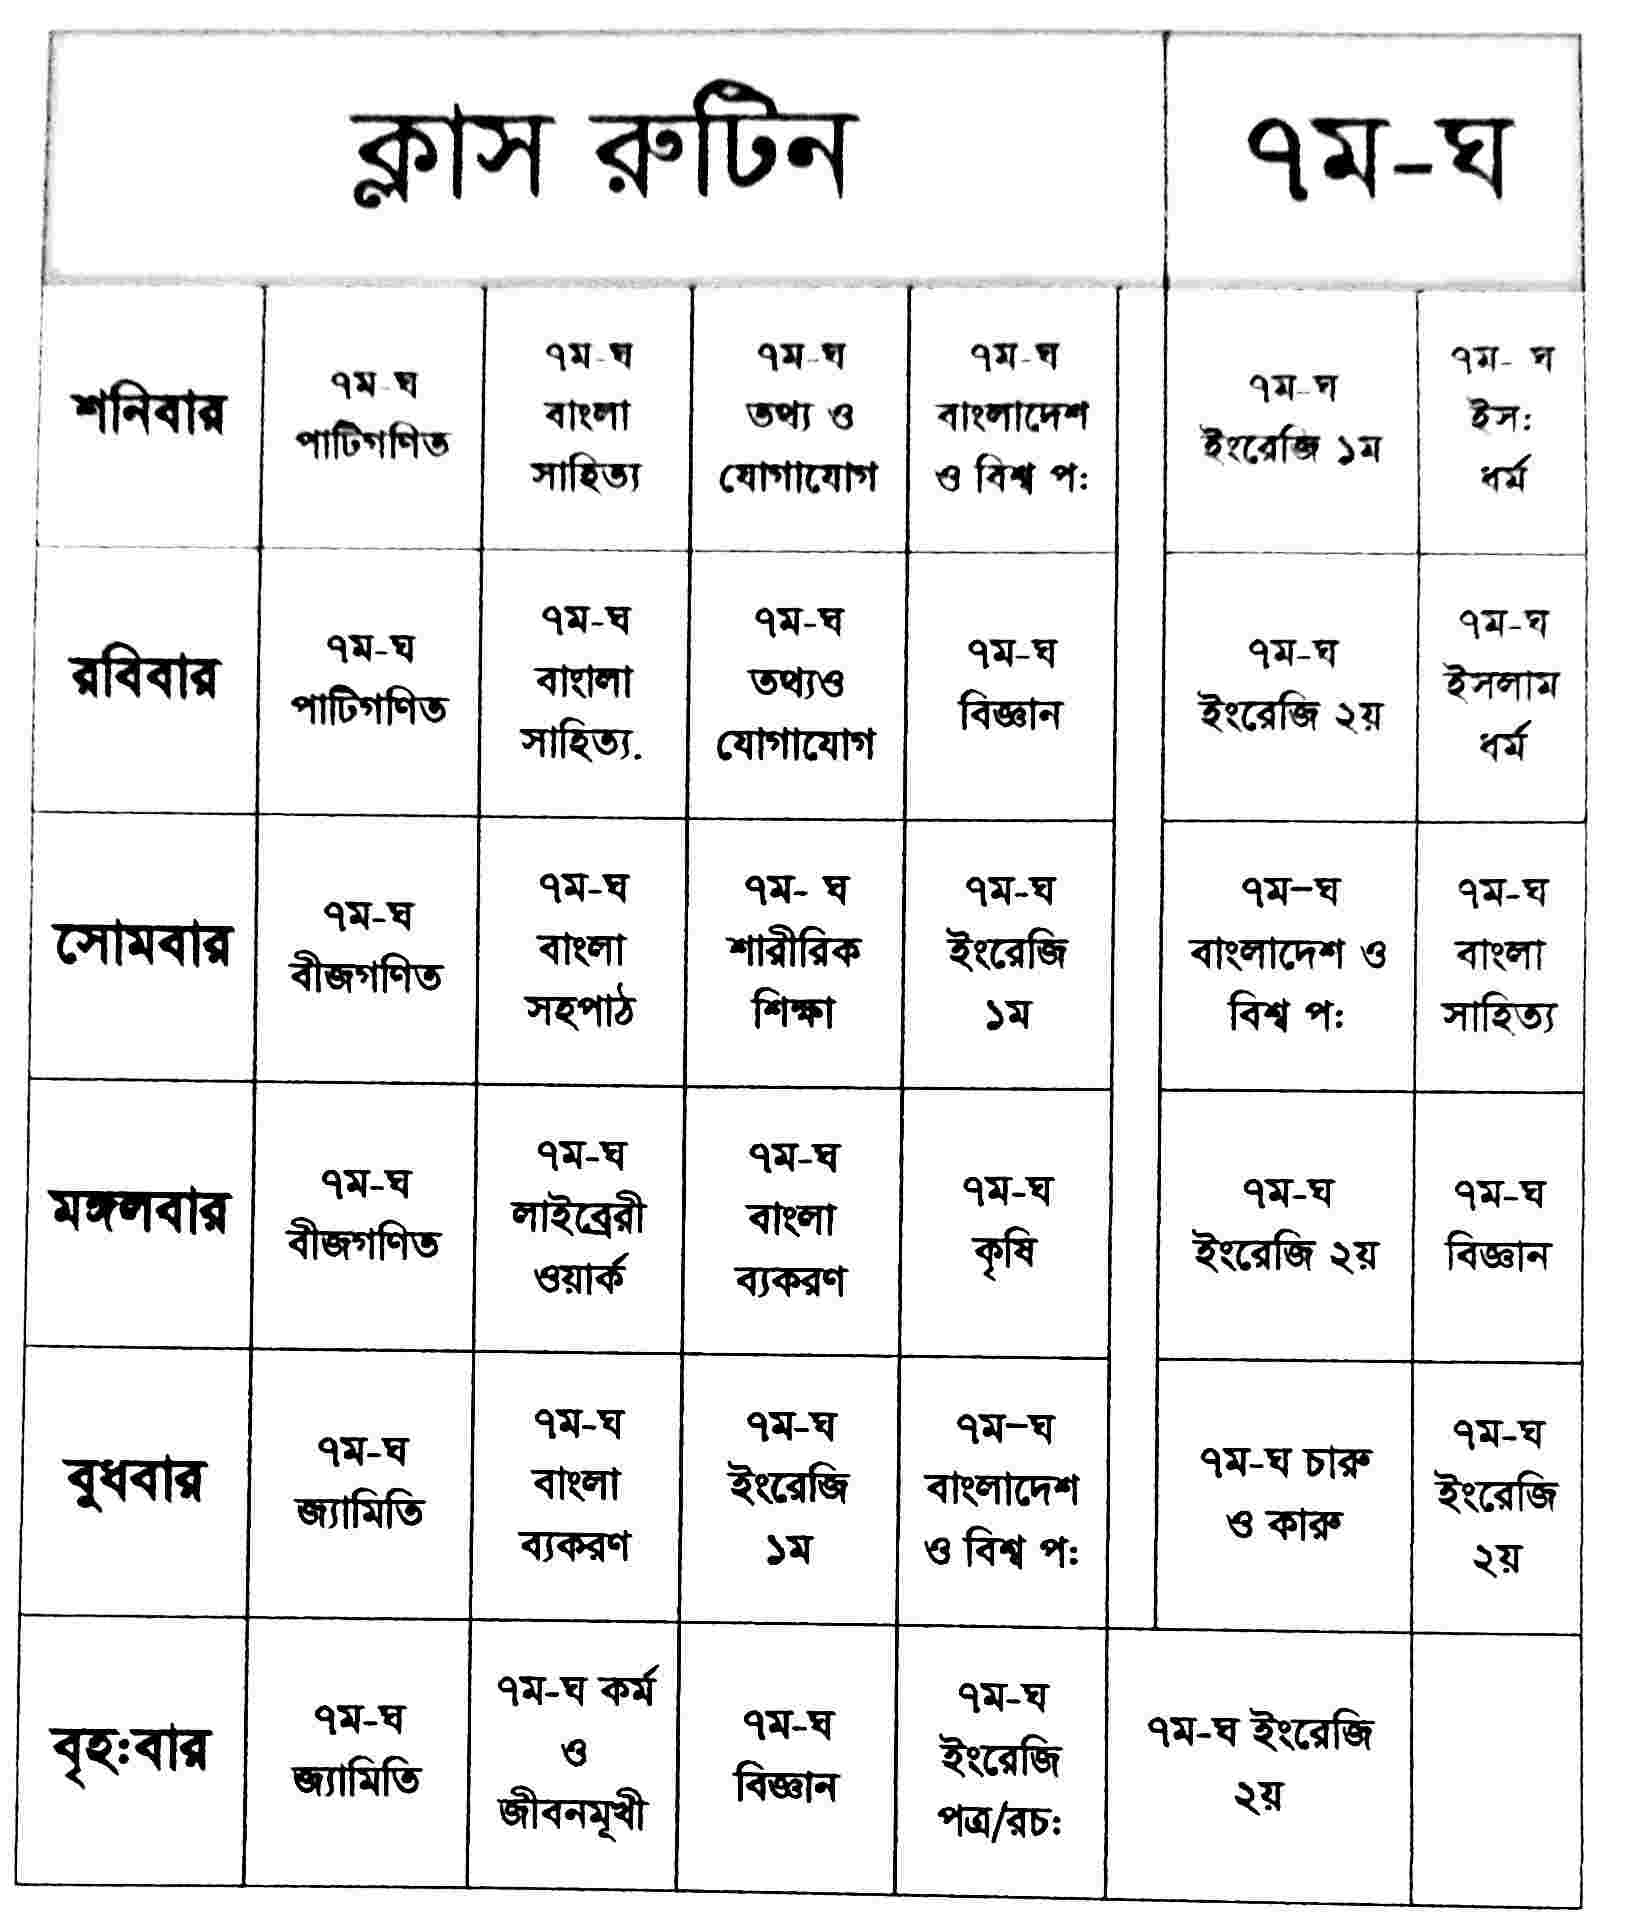 ক্লাস রুটিন
৭ম-ঘ
শনিবার
৭ম-ঘ
পাটিগণিত
৭ম-ঘ
বাংলা
সাহিত্য
৭ম-ঘ
তথ্য ও
যোগাযোগ
৭ম-ঘ
বাংলাদেশ
ও বিশ্ব প:
৭ম-ঘ
ইংরেজি ১ম
৭ম- ঘ
ইস:
ধর্ম
রবিবার
৭ম-ঘ
পাটিগণিত
৭ম-ঘ
বাংলা
সাহিত্য.
৭ম-ঘ
তথ্যও
যোগাযোগ
৭ম-ঘ
বিজ্ঞান
৭ম-ঘ
ইংরেজি ২য়
৭ম-ঘ
ইসলাম
ধর্ম
সোমবার
৭ম-ঘ
বীজগণিত
৭ম-ঘ
বাংলা
সহপাঠ
৭ম- ঘ
শারীরিক
শিক্ষা
৭ম-ঘ
ইংরেজি
১ম
৭ম–ঘ
বাংলাদেশ ও
বিশ্ব প:
৭ম-ঘ
বাংলা
সাহিত্য
মঙ্গলবার
৭ম-ঘ
বীজগণিত
৭ম-ঘ
লাইব্রেরী
ওয়ার্ক
৭ম-ঘ
বাংলা
ব্যকরণ
৭ম-ঘ
কৃষি
৭ম-ঘ
ইংরেজি ২য়
৭ম-ঘ
বিজ্ঞান
বুধবার
৭ম-ঘ
জ্যামিতি
৭ম-ঘ
বাংলা
ব্যকরণ
৭ম-ঘ
ইংরেজি
১ম
৭ম–ঘ
বাংলাদেশ
ও বিশ্ব প:
৭ম-ঘ চারু
ও কারু
৭ম-ঘ
ইংরেজি
২য়
বৃহ:বার
৭ম-ঘ
জ্যামিতি
৭ম-ঘ কর্ম
ও
জীবনমূখী
৭ম-ঘ
বিজ্ঞান
৭ম-ঘ
ইংরেজি
পত্র/রচ:
৭ম-ঘ ইংরেজি
২য়